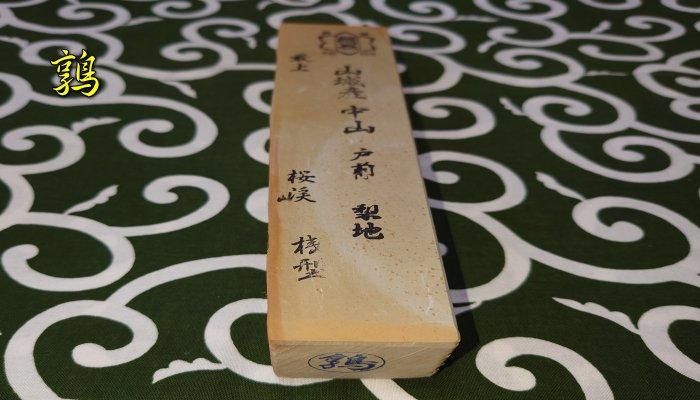 鶉
最上
山城産 中山 戸前 梨地
桜渓
鶉